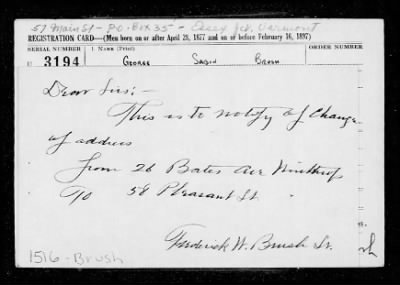 57 Main St - P.O. Box 35 - Essex Jct. Vermont
REGISTRATION CARD—(Men born on or after April 28, 1877 and on or before February 16, 1897)
SERIAL NUMBER 1. NAME (Print) ORDER NUMBER
U 3194 GEORGE SABIN BRUSH
Dear Sirs:-
This is to notify of change
of address
from 26 Bates Ave Winthrop
To 58 Pleasant St.
Frederick W. Brush Sr.
1516 - Brush